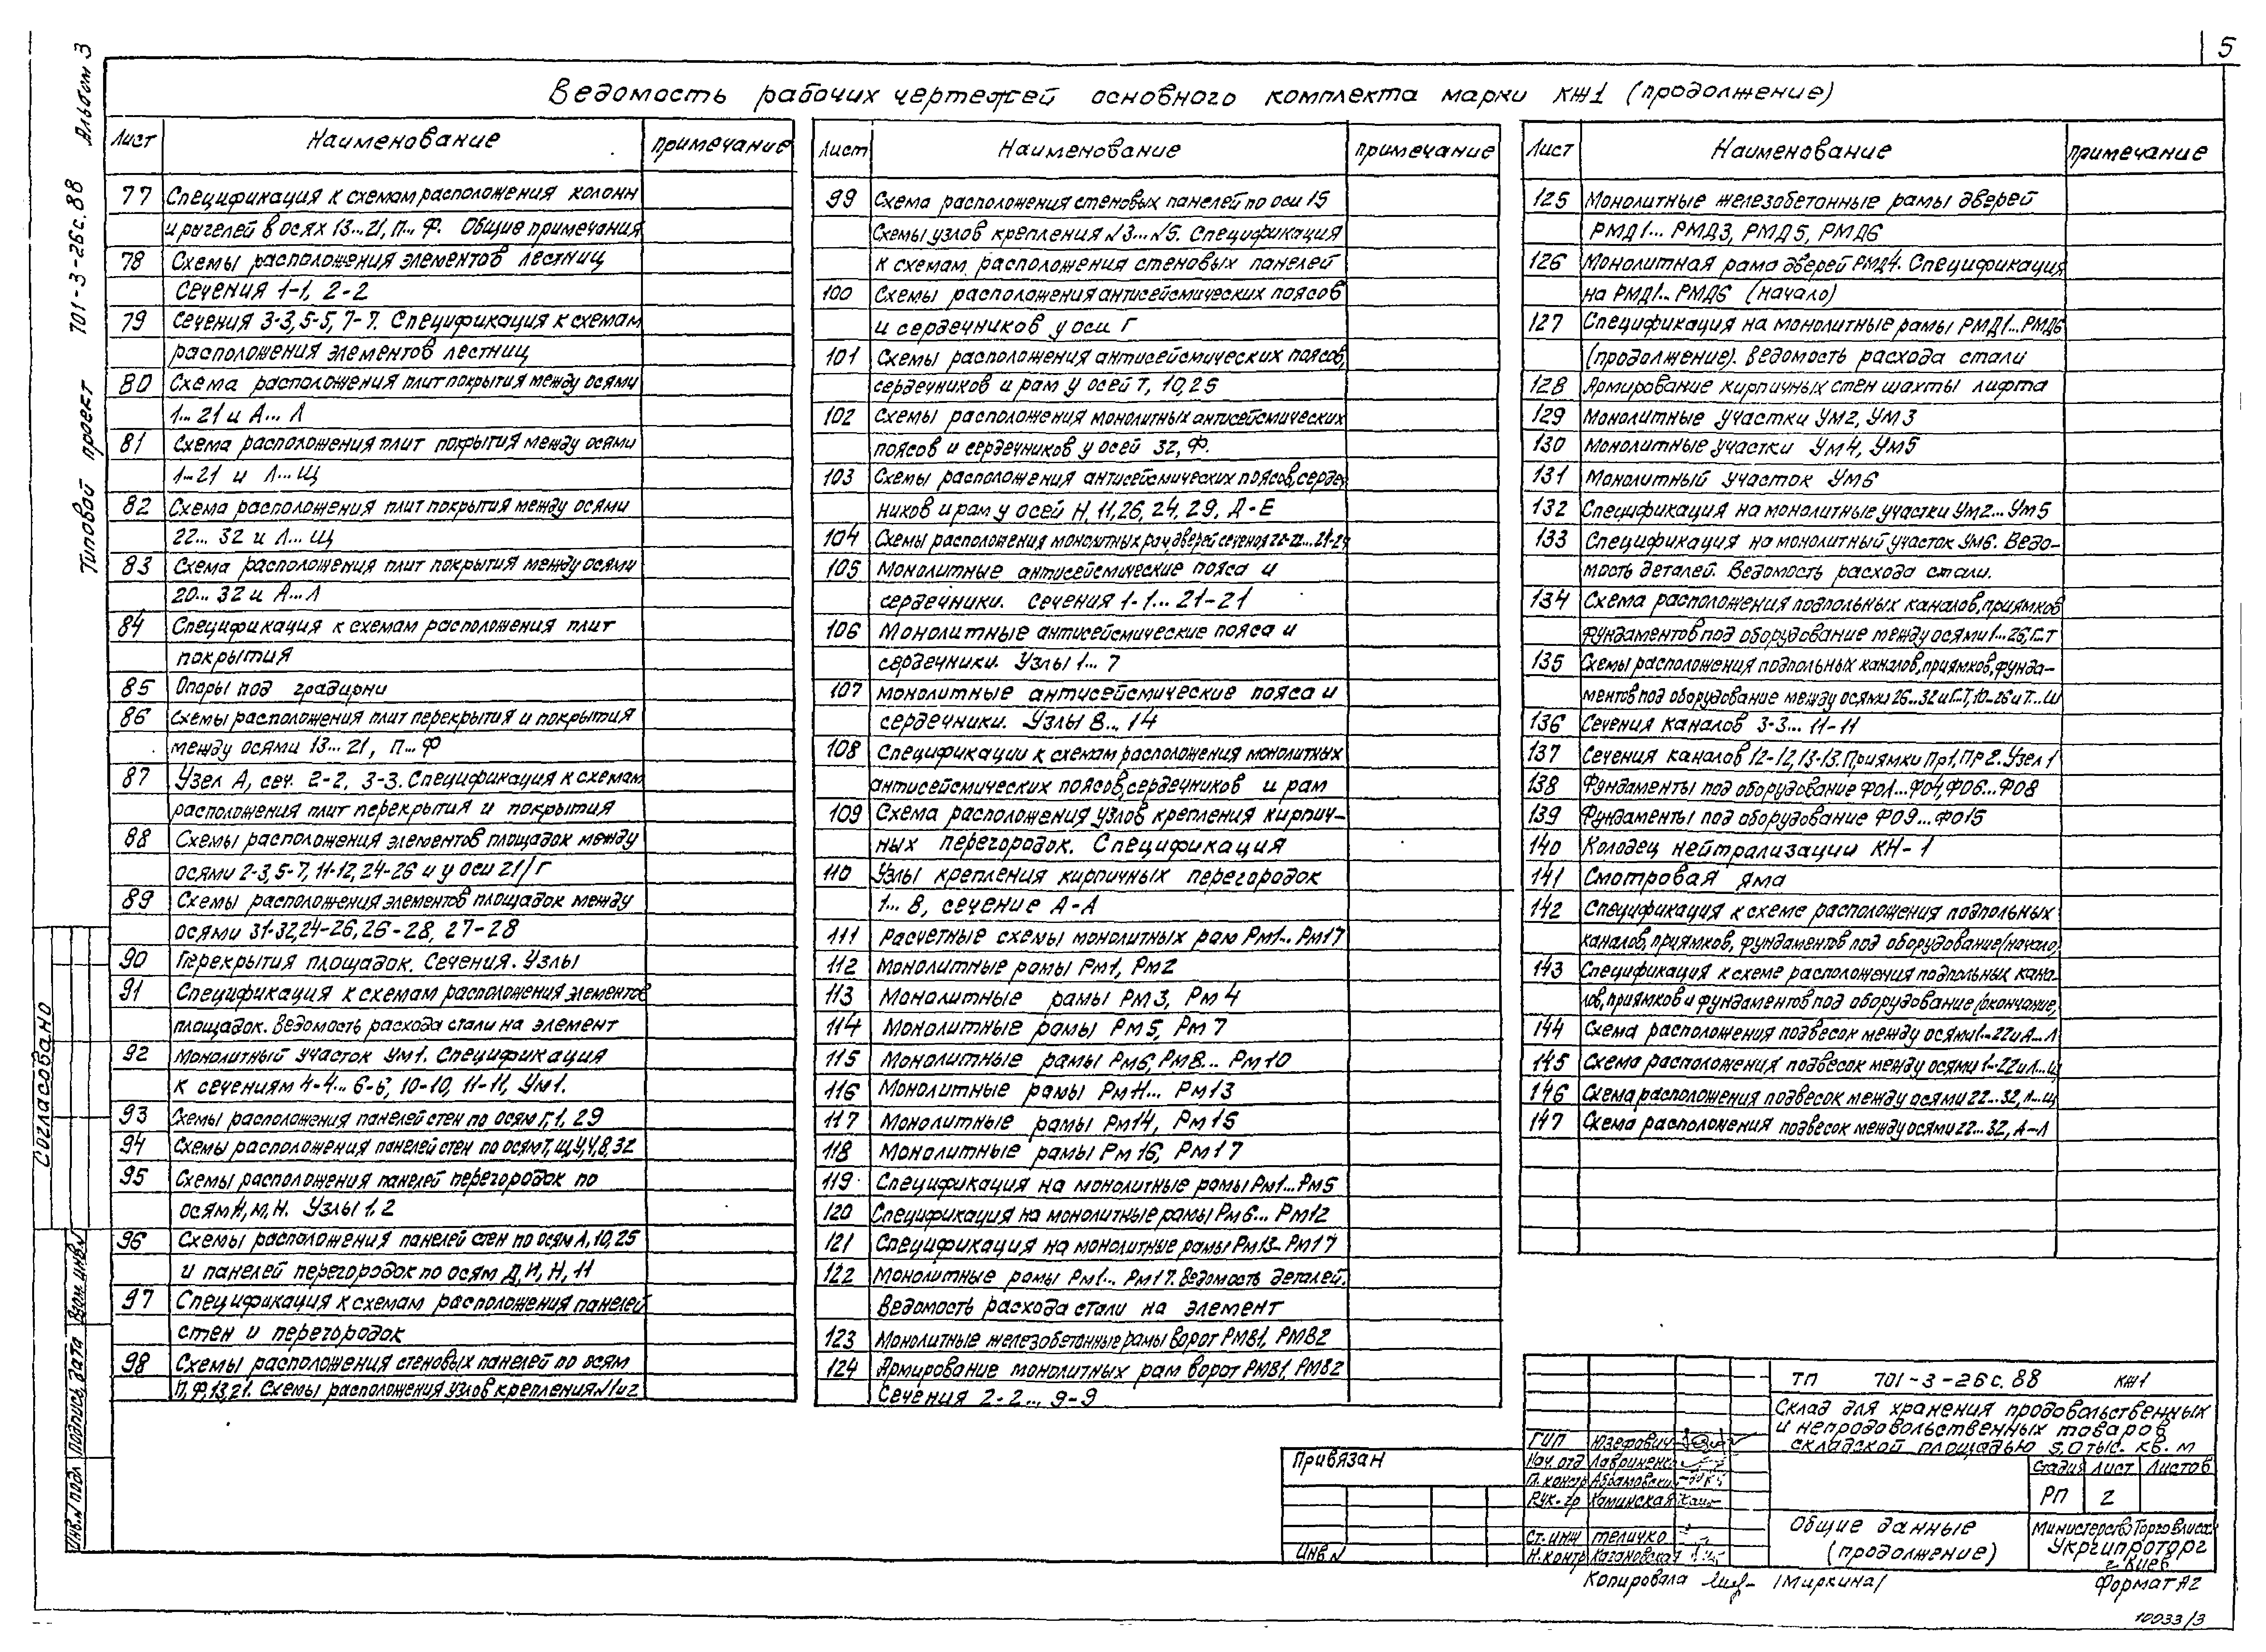 5
Альбом 3
Типовой проект 701-3-26с.88
Ведомость рабочих чертежей основного комплекта марки КЖ1 (продолжение)
Лист Наименование Примечание
77 Спецификация к схемам расположения колонн
и ригелей в осях 13...21, П... Ф. Общие примечания
78 Схемы расположения элементов лестниц
Сечения 1-1, 2-2
79 Сечения 3-3, 5-5, 7-7. Спецификация к схемам
расположения элементов лестниц
80 Схема расположения плит покрытия между осями
1... 21 и А... Л
81 Схема расположения плит покрытия между осями
1...21 и Л...Щ
82 Схема расположения плит покрытия между осями
22... 32 и Л... Щ
83 Схема расположения плит покрытия между осями
20... 32 и А...Л
84 Спецификация к схемам расположения плит
покрытия
85 Опоры под градирни
86 Схемы расположения плит перекрытия и покрытия
между осями 13...21, П...Ф
87 Узел А, сеч. 2-2, 3-3. Спецификация к схемам
расположения плит перекрытия и покрытия
88 Схемы расположения элементов площадок между
осями 2-3, 5-7, 11-12, 24-26 и у оси 21/Г
89 Схемы расположения элементов площадок между
осями 31-32, 24-26, 26-28, 27-28
90 Перекрытия площадок. Сечения. Узлы
91 Спецификация к схемам расположения элементов
площадок. Ведомость расхода стали на элемент
92 Монолитный участок Ум1. Спецификация
к сечениям 4-4... 6-6, 10-10, 11-11, Ум1.
93 Схемы расположения панелей стен по осям Г, 1, 29
94 Схемы расположения панелей стен по осям Т, Щ, У, 4, 8, 32
95 Схемы расположения панелей перегородок по
осям А, М, Н. Узлы 1, 2
96 Схемы расположения панелей стен по осям Л, 10, 25
и панелей перегородок по осям Д, И, Н, 11
97 Спецификация к схемам расположения панелей
стен и перегородок
98 Схемы расположения стеновых панелей по осям
П, Ф, 13, 21. Схемы расположения узлов крепления N1и2
Лист Наименование Примечание
99 Схема расположения стеновых панелей по оси 15
Схемы узлов крепления N3...N5. Спецификация
к схемам расположения стеновых панелей
100 Схемы расположения антисейсмических поясов
и сердечников у оси Г
101 Схемы расположения антисейсмических поясов,
сердечников и рам у осей Т, 10, 25
102 Схемы расположения монолитных антисейсмических
поясов и сердечников у осей 32, Ф.
103 Схемы расположения антисейсмических поясов, сердеч
ников и рам у осей Н, 11, 26, 24, 29, Д-Е
104 Схемы расположения монолитных рам, дверей сечения 22-22...24-24
105 Монолитные антисейсмические пояса и
сердечники. Сечения 1-1... 21-21
106 Монолитные антисейсмические пояса и
сердечники. Узлы 1... 7
107 Монолитные антисейсмические пояса и
сердечники. Узлы 8... 14
108 Спецификации к схемам расположения монолитных
антисейсмических поясов, сердечников и рам
109 Схема расположения узлов крепления кирпич-
ных перегородок. Спецификация
110 Узлы крепления кирпичных перегородок
1... 8, сечение А-А
111 Расчетные схемы монолитных рам Рм1... Рм17
112 Монолитные рамы Рм1, Рм2
113 Монолитные рамы Рм3, Рм4
114 Монолитные рамы Рм5, Рм7
115 Монолитные рамы Рм6, Рм8... Рм10
116 Монолитные рамы Рм11... Рм13
117 Монолитные рамы Рм14, Рм15
118 Монолитные рамы Рм16, Рм17
119 Спецификация на монолитные рамы Рм1...Рм5
120 Спецификация на монолитные рамы Рм6... Рм12
121 Спецификация на монолитные рамы Рм13...Рм17
122 Монолитные рамы Рм1... Рм17. Ведомость деталей.
Ведомость расхода стали на элемент
123 Монолитные железобетонные рамы ворот РМВ1, РМВ2
124 Армирование монолитных рам ворот РМВ1, РМВ2
Сечения 2-2... 9-9
Лист Наименование Примечание
125 Монолитные железобетонные рамы дверей
РМД1... РМД3, РМД5, РМД6
126 Монолитная рама дверей РМД4. Спецификация
на РМД1... РМД6 (начало)
127 Спецификация на монолитные рамы РМД1...РМД6
(продолжение). Ведомость расхода стали
128 Армирование кирпичных стен шахты лифта
129 Монолитные участки Ум2, Ум3
130 Монолитные участки Ум4, Ум5
131 Монолитный участок Ум6
132 Спецификация на монолитные участки Ум2... Ум5
133 Спецификация на монолитный участок Ум6. Ведо-
мость деталей. Ведомость расхода стали.
134 Схема расположения подпольных каналов, приямков
фундаментов под оборудование между осями 1...26, Г...Т
135 Схемы расположения подпольных каналов, приямков, фунда-
ментов под оборудование между осями 26...32 и Г...Т, 10...26 и Т...Щ
136 Сечения каналов 3-3... 11-11
137 Сечения каналов 12-12, 13-13. Приямки Пр1, Пр2. Узел 1
138 Фундаменты под оборудование ФО1...ФО4, ФО6...ФО8
139 Фундаменты под оборудование ФО9...ФО15
140 Колодец нейтрализации КН-1
141 Смотровая яма
142 Спецификация к схеме расположения подпольных
каналов, приямков, фундаментов под оборудование (начало)
143 Спецификация к схеме расположения подпольных кана-
лов, приямков и фундаментов под оборудование (окончание)
144 Схема расположения подвесок между осями 1...22 и А...Л
145 Схема расположения подвесок между осями 1...22 и Л...Щ
146 Схема расположения подвесок между осями 22...32, Л...Щ
147 Схема расположения подвесок между осями 22...32, А-Л
Согласовано
Инв.N подл Подпись, дата Взам.инв.N
Привязан
Инв N
ТП 701-3-26с.88 КЖ1
Склад для хранения продовольственных
и непродовольственных товаров
складской площадью 5,0 тыс. кв. м
ГИП Юзефович
Нач.отд Лавриненко
Гл.констр Абрамовский
Рук.гр Каминская
Ст.инж Теличко
Н.контр Кагановская
Стадия Лист Листов
РП 2
Общие данные
(продолжение)
Министерство Торговли
Укргипроторг
г. Киев
Копировала /Миркина/
Формат А2
10033/3